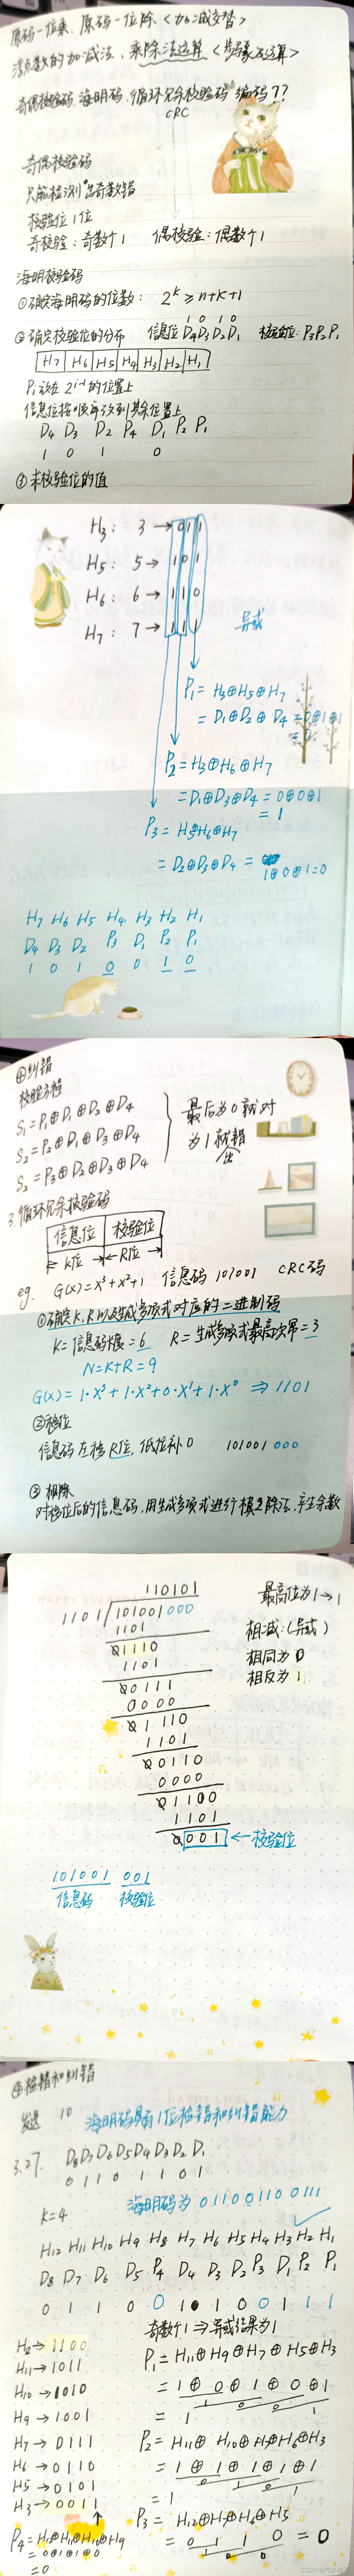 原码一位乘、原码一位除<加减交替>
浮点数的加减法、乘除法运算<步骤及运算>
奇偶校验码、海明码、循环冗余校验码 编码??
CRC
奇偶校验码
只能检测出奇数错
校验位1位
奇校验:奇数个1 偶校验:偶数个1
海明校验码
①确定海明码的位数: 2^k ≥ n+k+1
1 0 1 0
②确定校验位的分布 信息位 D4D3D2D1 校验位:P3P2P1
H7 H6 H5 H4 H3 H2 H1
Pi放在 2^(i-1) 的位置上
信息位按顺序放到其余位置上
D4 D3 D2 P4 D1 P2 P1
1 0 1 0
③求校验位的值
H3: 3 → 0 1 1
H5: 5 → 1 0 1
H6: 6 → 1 1 0
H7: 7 → 1 1 1
异或
P1 = H3⊕H5⊕H7
= D1⊕D2⊕D4 = 0⊕1⊕1
= 0
P2 = H3⊕H6⊕H7
= D1⊕D3⊕D4 = 0⊕0⊕1
= 1
P3 = H5⊕H6⊕H7
= D2⊕D3⊕D4 =
1⊕0⊕1=0
H7 H6 H5 H4 H3 H2 H1
D4 D3 D2 P3 D1 P2 P1
1 0 1 0 0 1 0
④纠错
校验方程
S1 = P1⊕D1⊕D2⊕D4
S2 = P2⊕D1⊕D3⊕D4
S2 = P3⊕D2⊕D3⊕D4
最后为0就对
为1就错
出
3.循环冗余校验码
信息位 校验位
K位 R位
eg. G(x)=X³+X²+1 信息码 101001 CRC码
①确定K、R以及生成多项式对应的二进制码
K=信息码长度=6 R=生成多项式最高次幂=3
N=K+R=9
G(x)=1·X³+1·X²+0·X¹+1·X⁰ ⇒1101
②移位
信息码左移R位,低位补0 101001 000
③相除
对移位后的信息码,用生成多项式进行模2除法,产生余数
HAPPY EVERYDAY
110101
1101 101001000
1101
01110
1101
00111
0000
01110
1101
00110
0000
01100
1101
0001 ←校验位
最高位为1→1
相减:(异或)
相同为0
相反为1
101001 001
信息码 校验位
④检错和纠错
HAPPY LIFE
发送 10 海明码具有1位检错和纠错能力
3.27. D8D7D6D5D4D3D2D1
0 1 1 0 1 1 0 1
k=4 海明码为 0110 0110 0111
H12 H11 H10 H9 H8 H7 H6 H5 H4 H3 H2 H1
D8 D7 D6 D5 P4 D4 D3 D2 P3 D1 P2 P1
0 1 1 0 0 1 1 0 0 1 1 1
奇数个1 ⇒异或结果为1
H12→1100
H11→1011
H10→1010
H9→1001
H7→0111
H6→0110
H5→0101
H3→0011
P1=H11⊕H9⊕H7⊕H5⊕H3
= 1⊕0⊕1⊕0⊕1
= 1
P2=H11⊕H10⊕H7⊕H6⊕H3
= 1⊕1⊕1⊕1⊕1
= 1
P3=H12⊕H7⊕H6⊕H5
= 0 1 1 0 = 0
P4=H12⊕H11⊕H10⊕H9
= 0⊕1⊕1⊕0
=0